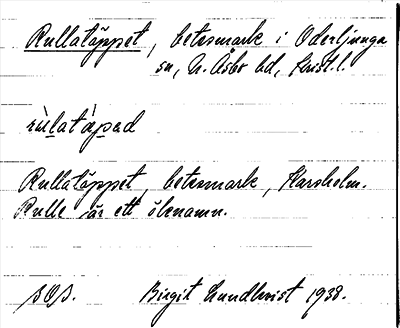 Rullatäppet, betesmark i Oderljunga
sn, N. Åsbo hd, Krist. l.
rùlatápad
Rullatäppet, betesmark, Karsholm.
Rulle är ett öknamn.
SOS. Birgit Lundkvist 1938.